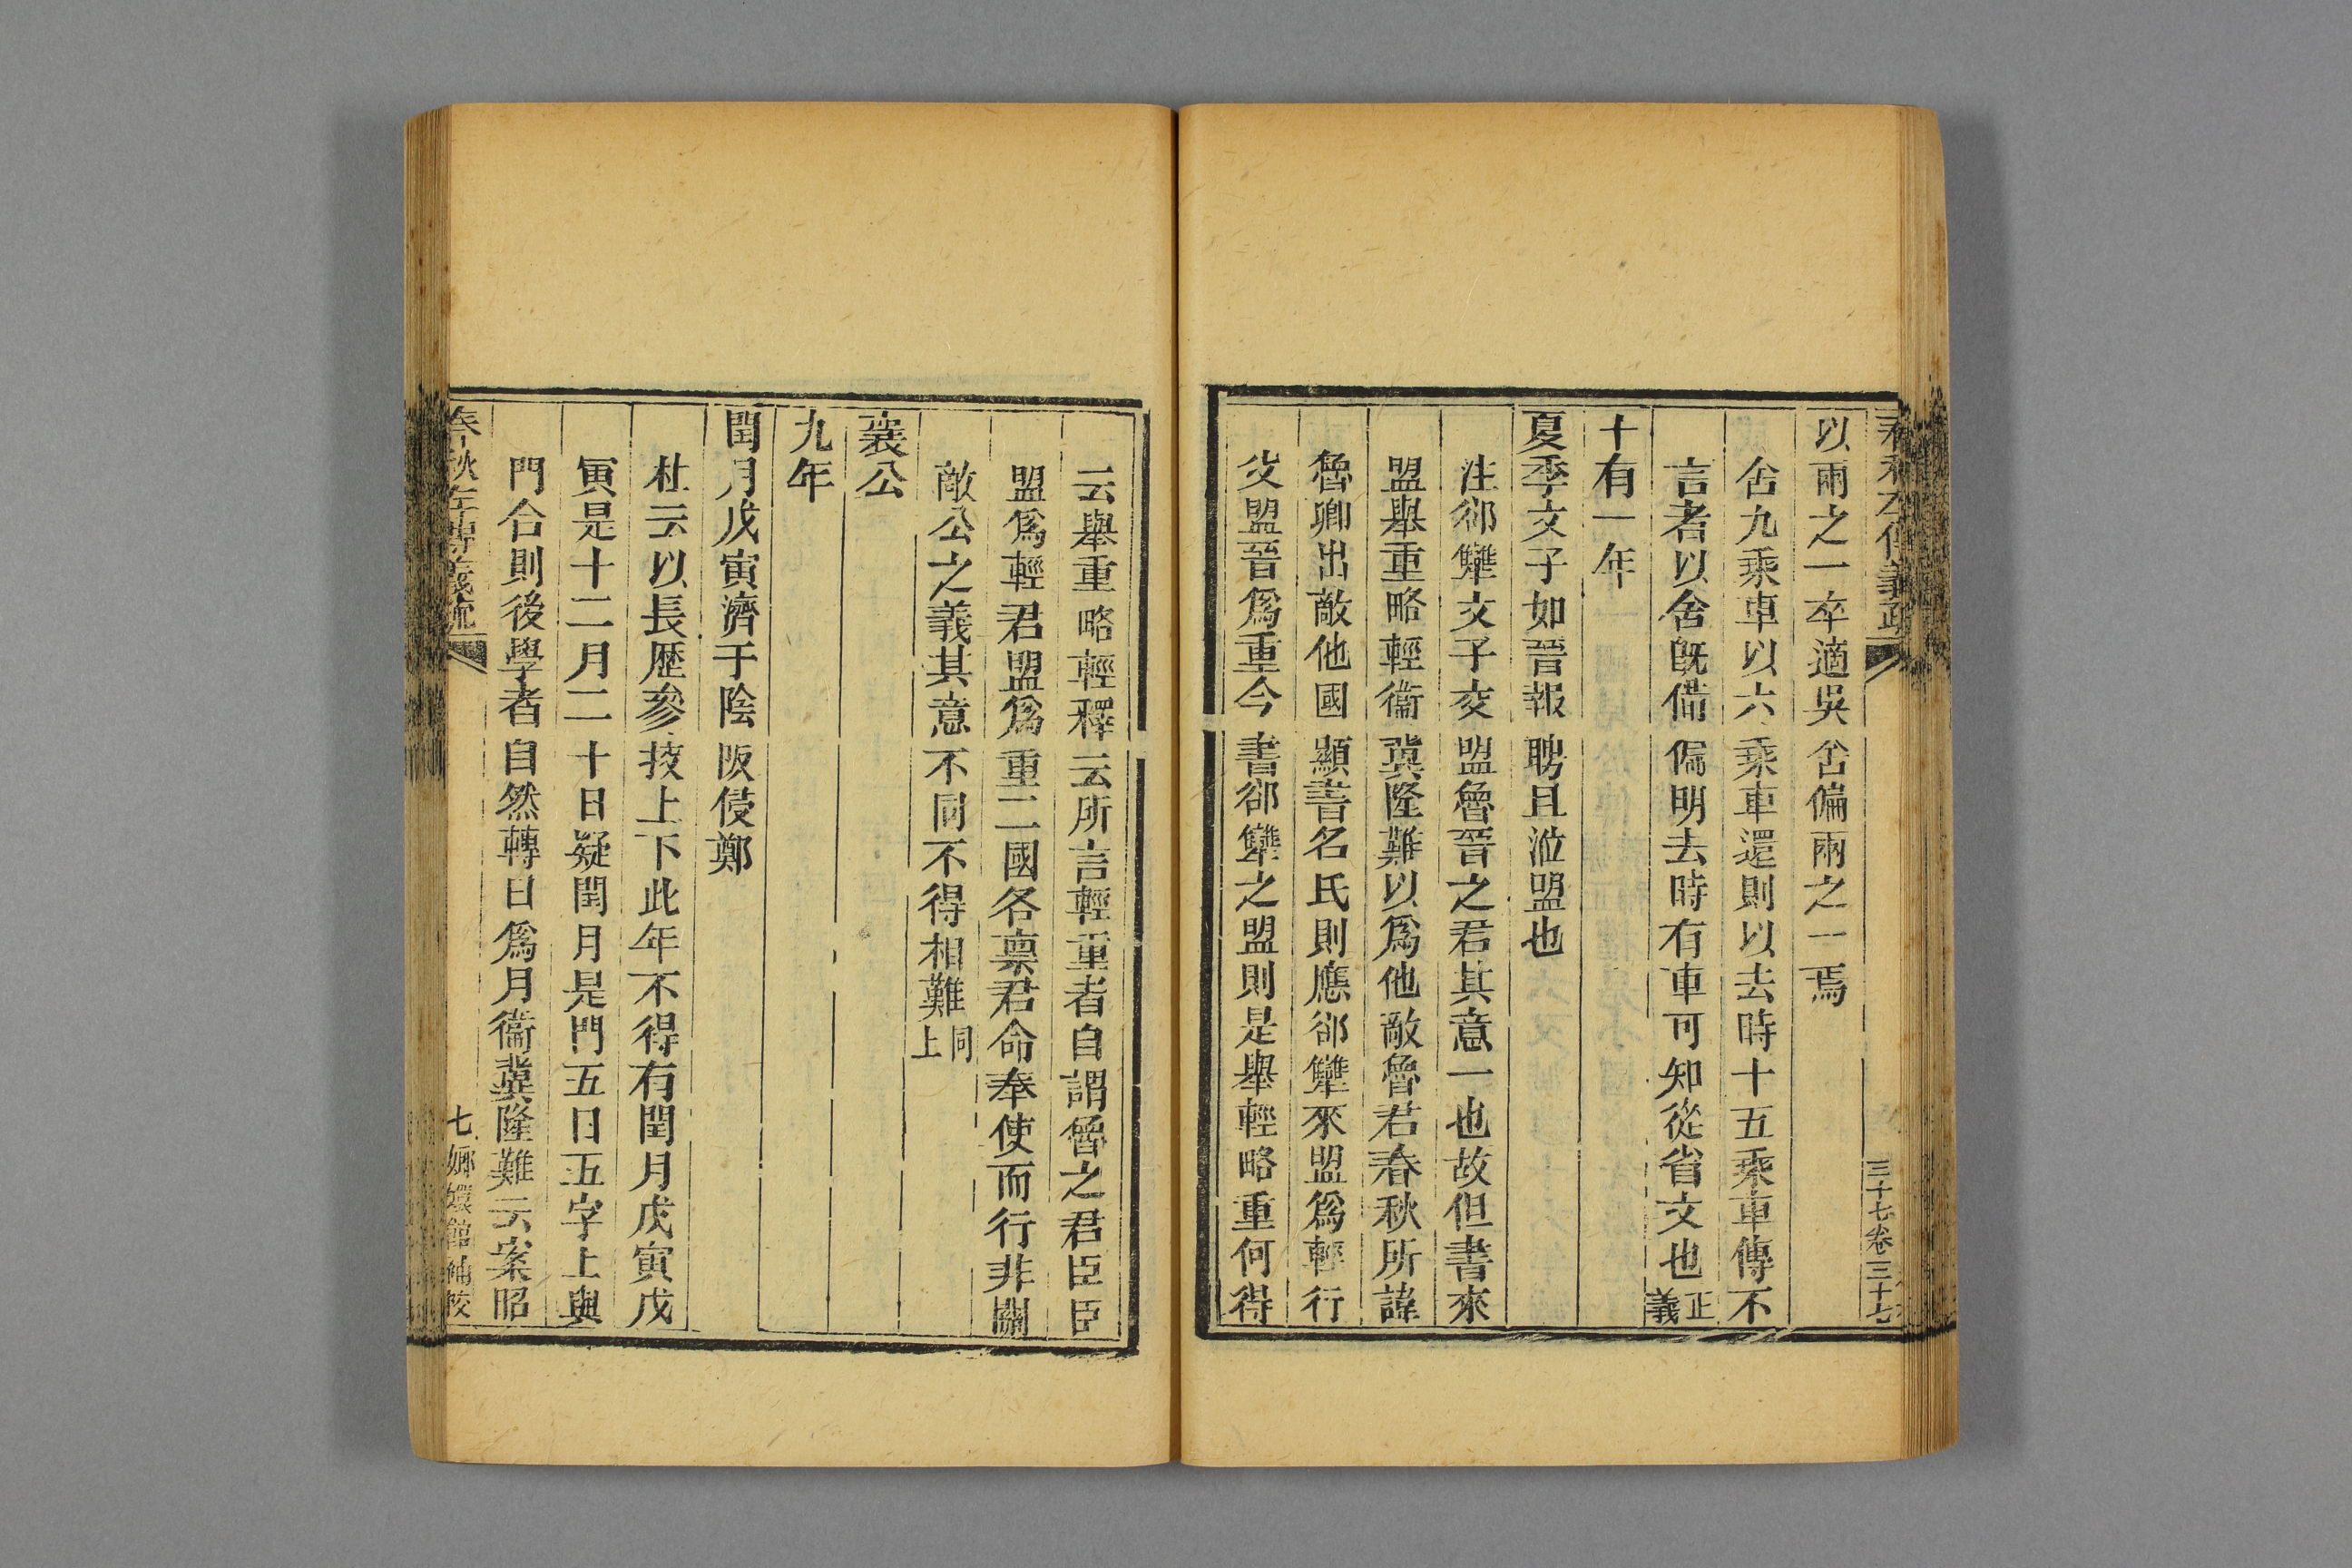 春秋左傳義疏
三十七卷三十七
以兩之一卒適吳舍偏兩之一焉
舍九乘車以六乘車還則以去時十五乘車傳不
言者以舍旣備偏明去時有車可知從省文也正義
十有一年
夏季文子如晉報聘且涖盟也
注郤犫文子交盟魯晉之君其意一也故但書來
盟舉重略輕衞冀隆難以爲他敵魯君春秋所諱
魯卿出敵他國顯書名氏則應郤犫來盟爲輕行
父盟晉爲重今書郤犫之盟則是舉輕略重何得
云舉重略輕釋云所言輕重者自謂魯之君臣臣
盟爲輕君盟爲重二國各禀君命奉使而行非關
敵公之義其意不同不得相難同上
襄公
九年
閏月戊寅濟于陰阪侵鄭
杜云以長歷參挍上下此年不得有閏月戊寅戊
寅是十二月二十日疑閏月是門五日五字上與
門合則後學者自然轉日爲月衞冀隆難云案昭
春秋左傳義疏
七 嫏嬛館補校